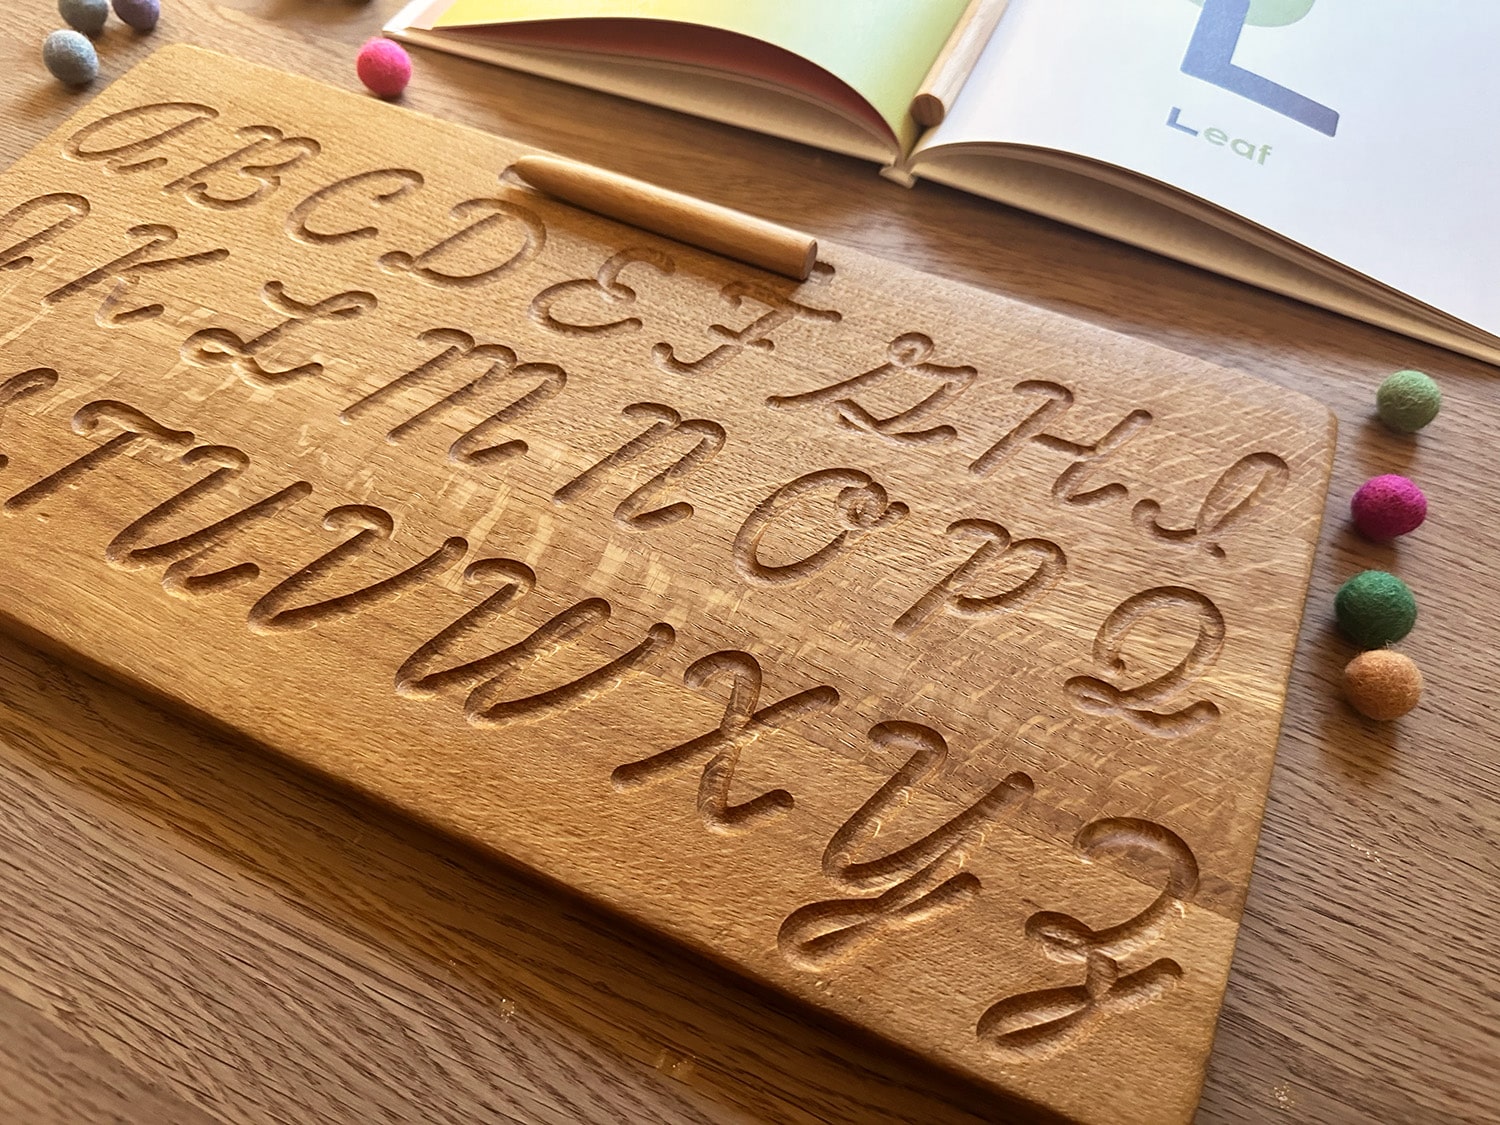 L
Leaf
A B C D E F G H I
J K L M N O P Q
S T U V W X Y Z